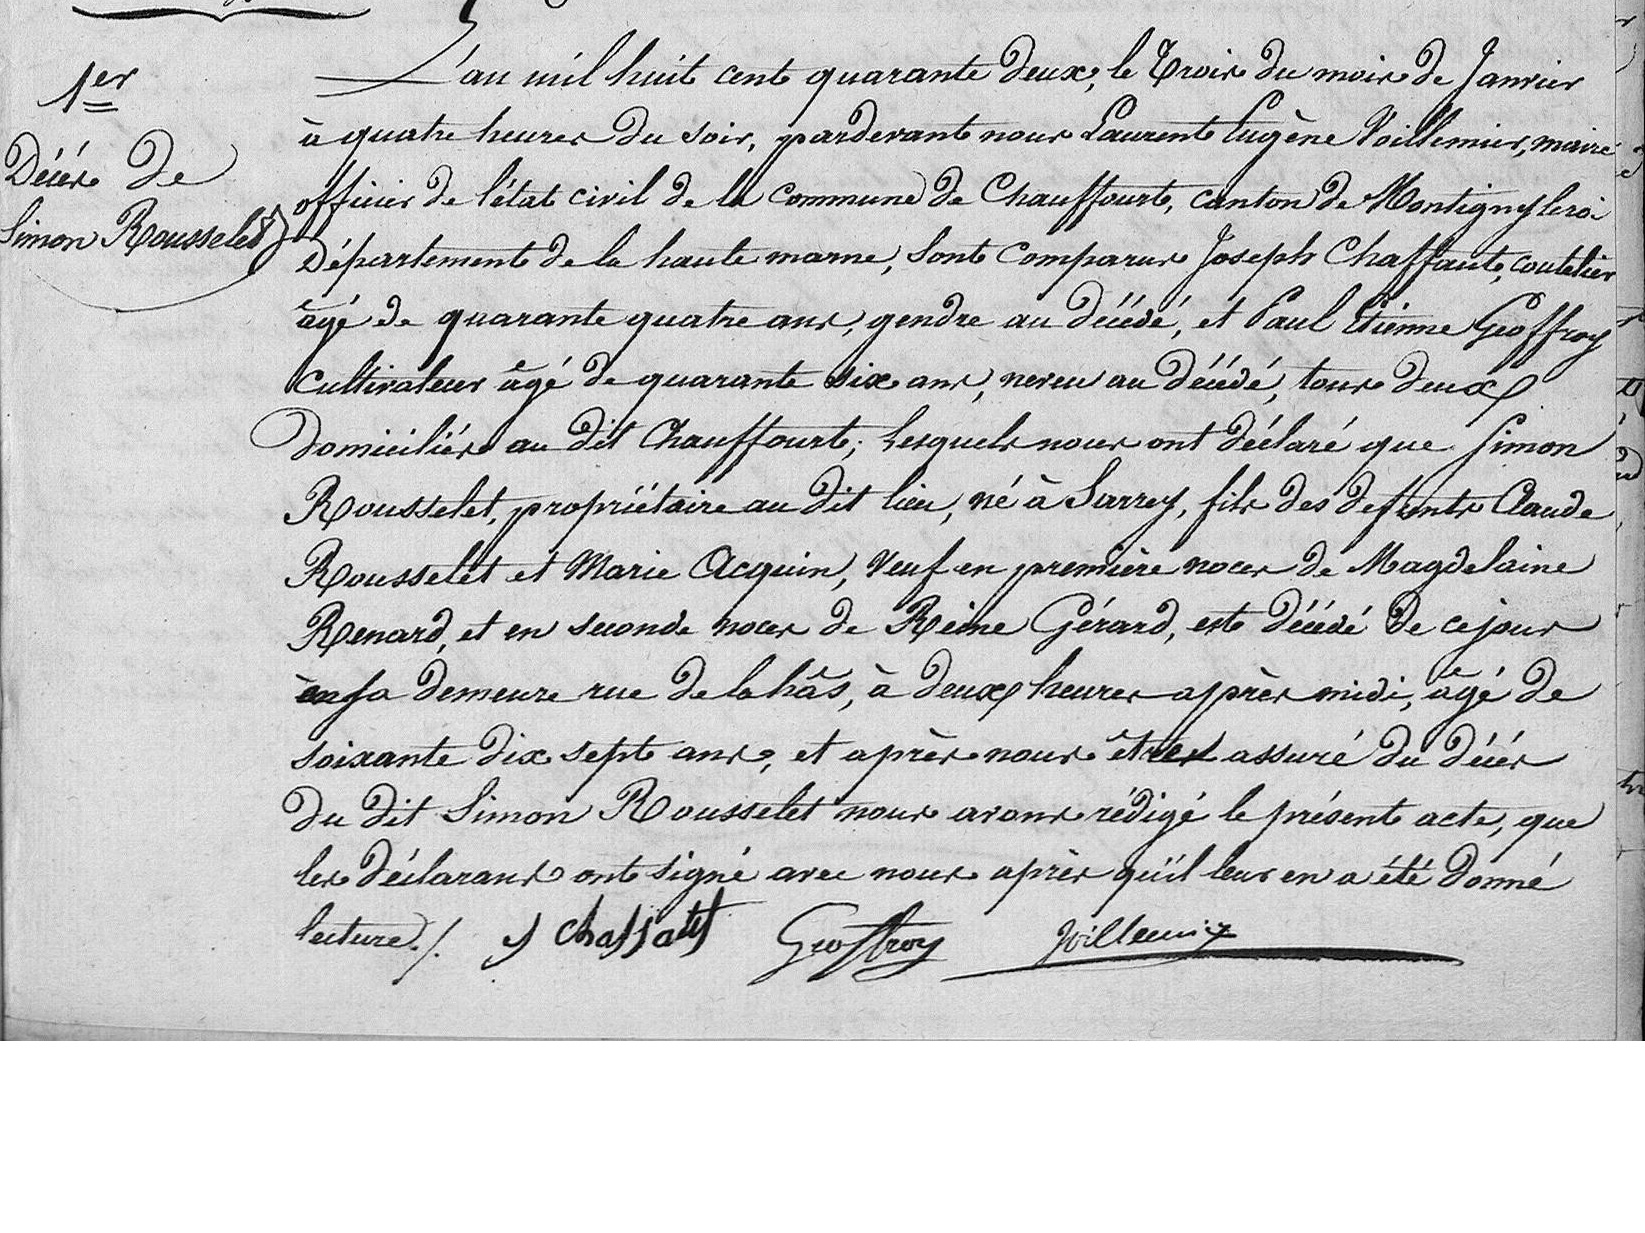 1er
Décès de
Simon Rousselet
L'an mil huit cent quarante deux, le Trois du mois de Janvier
à quatre heures du soir, pardevant nous Laurent Eugène Voillemier, maire
officier de l'état civil de la commune de Chauffourt, canton de Montigny leroi
Département de la haute marne, sont comparus Joseph Chaffaut, coutelier
âgé de quarante quatre ans, gendre au décédé, et Paul Etienne Geoffroy
cultivateur âgé de quarante six ans, neveu au décédé, tous deux
domiciliés au dit Chauffourt; Lesquels nous ont déclaré que Simon
Rousselet, propriétaire au dit lieu, né à Sarrey, fils des defunts Claude
Rousselet et Marie Acquin, Veuf en première noces de Magdelaine
Renard, et en seconde noces de Reine Gérard, est décédé De ce jour
en sa demeure rue de la hâs, à deux heures après midi, âgé de
soixante dix sept ans, et après nous être assuré du décès
du dit Simon Rousselet nous avons rédigé le présent acte, que
les déclarans ont signé avec nous après qu'il leur en a été donné
lecture ./. J chaffaut Geoffroy Voillemier